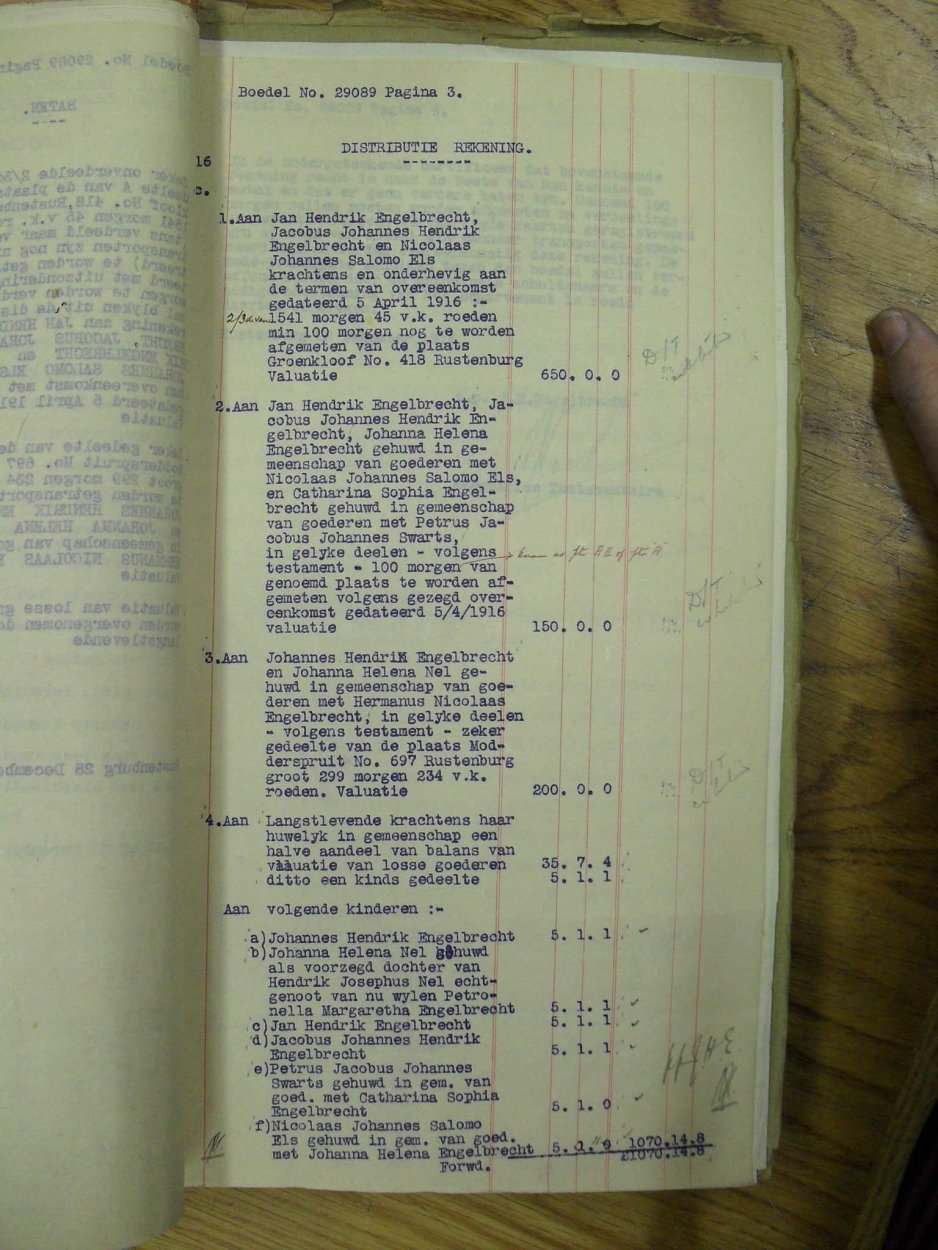 Boedel No. 29089 Pagina 3.
DISTRIBUTIE REKENING.
--------
16
c.
1.Aan Jan Hendrik Engelbrecht,
Jacobus Johannes Hendrik
Engelbrecht en Nicolaas
Johannes Salomo Els
krachtens en onderhevig aan
de termen van overeenkomst
gedateerd 5 April 1916 :-
2/3 de van 1541 morgen 45 v.k. roeden
min 100 morgen nog te worden
afgemeten van de plaats
Groenkloof No. 418 Rustenburg
Valuatie 650. 0. 0
D/T
2.Aan Jan Hendrik Engelbrecht, Ja-
cobus Johannes Hendrik En-
gelbrecht, Johanna Helena
Engelbrecht gehuwd in ge-
meenschap van goederen met
Nicolaas Johannes Salomo Els,
en Catharina Sophia Engel-
brecht gehuwd in gemeenschap
van goederen met Petrus Ja-
cobus Johannes Swarts,
in gelyke deelen - volgens
testament - 100 morgen van
genoemd plaats te worden af-
gemeten volgens gezegd over-
eenkomst gedateerd 5/4/1916
valuatie 150. 0. 0
D/T
3.Aan Johannes Hendrik Engelbrecht
en Johanna Helena Nel ge-
huwd in gemeenschap van goe-
deren met Hermanus Nicolaas
Engelbrecht, in gelyke deelen
- volgens testament - zeker
gedeelte van de plaats Mod-
derspruit No. 697 Rustenburg
groot 299 morgen 234 v.k.
roeden. Valuatie 200. 0. 0
D/T
4.Aan Langstlevende krachtens haar
huwelyk in gemeenschap een
halve aandeel van balans van
valuatie van losse goederen 35. 7. 4
ditto een kinds gedeelte 5. 1. 1
Aan volgende kinderen :-
a)Johannes Hendrik Engelbrecht 5. 1. 1
b)Johanna Helena Nel gehuwd
als voorzegd dochter van
Hendrik Josephus Nel echt-
genoot van nu wylen Petro-
nella Margaretha Engelbrecht 5. 1. 1
c)Jan Hendrik Engelbrecht 5. 1. 1
d)Jacobus Johannes Hendrik
Engelbrecht 5. 1. 1
e)Petrus Jacobus Johannes
Swarts gehuwd in gem. van
goed. met Catharina Sophia
Engelbrecht 5. 1. 0
f)Nicolaas Johannes Salomo
Els gehuwd in gem. van goed.
met Johanna Helena Engelbrecht 5. 1. 0 1070.14.8
Forwd. £1070.14.8